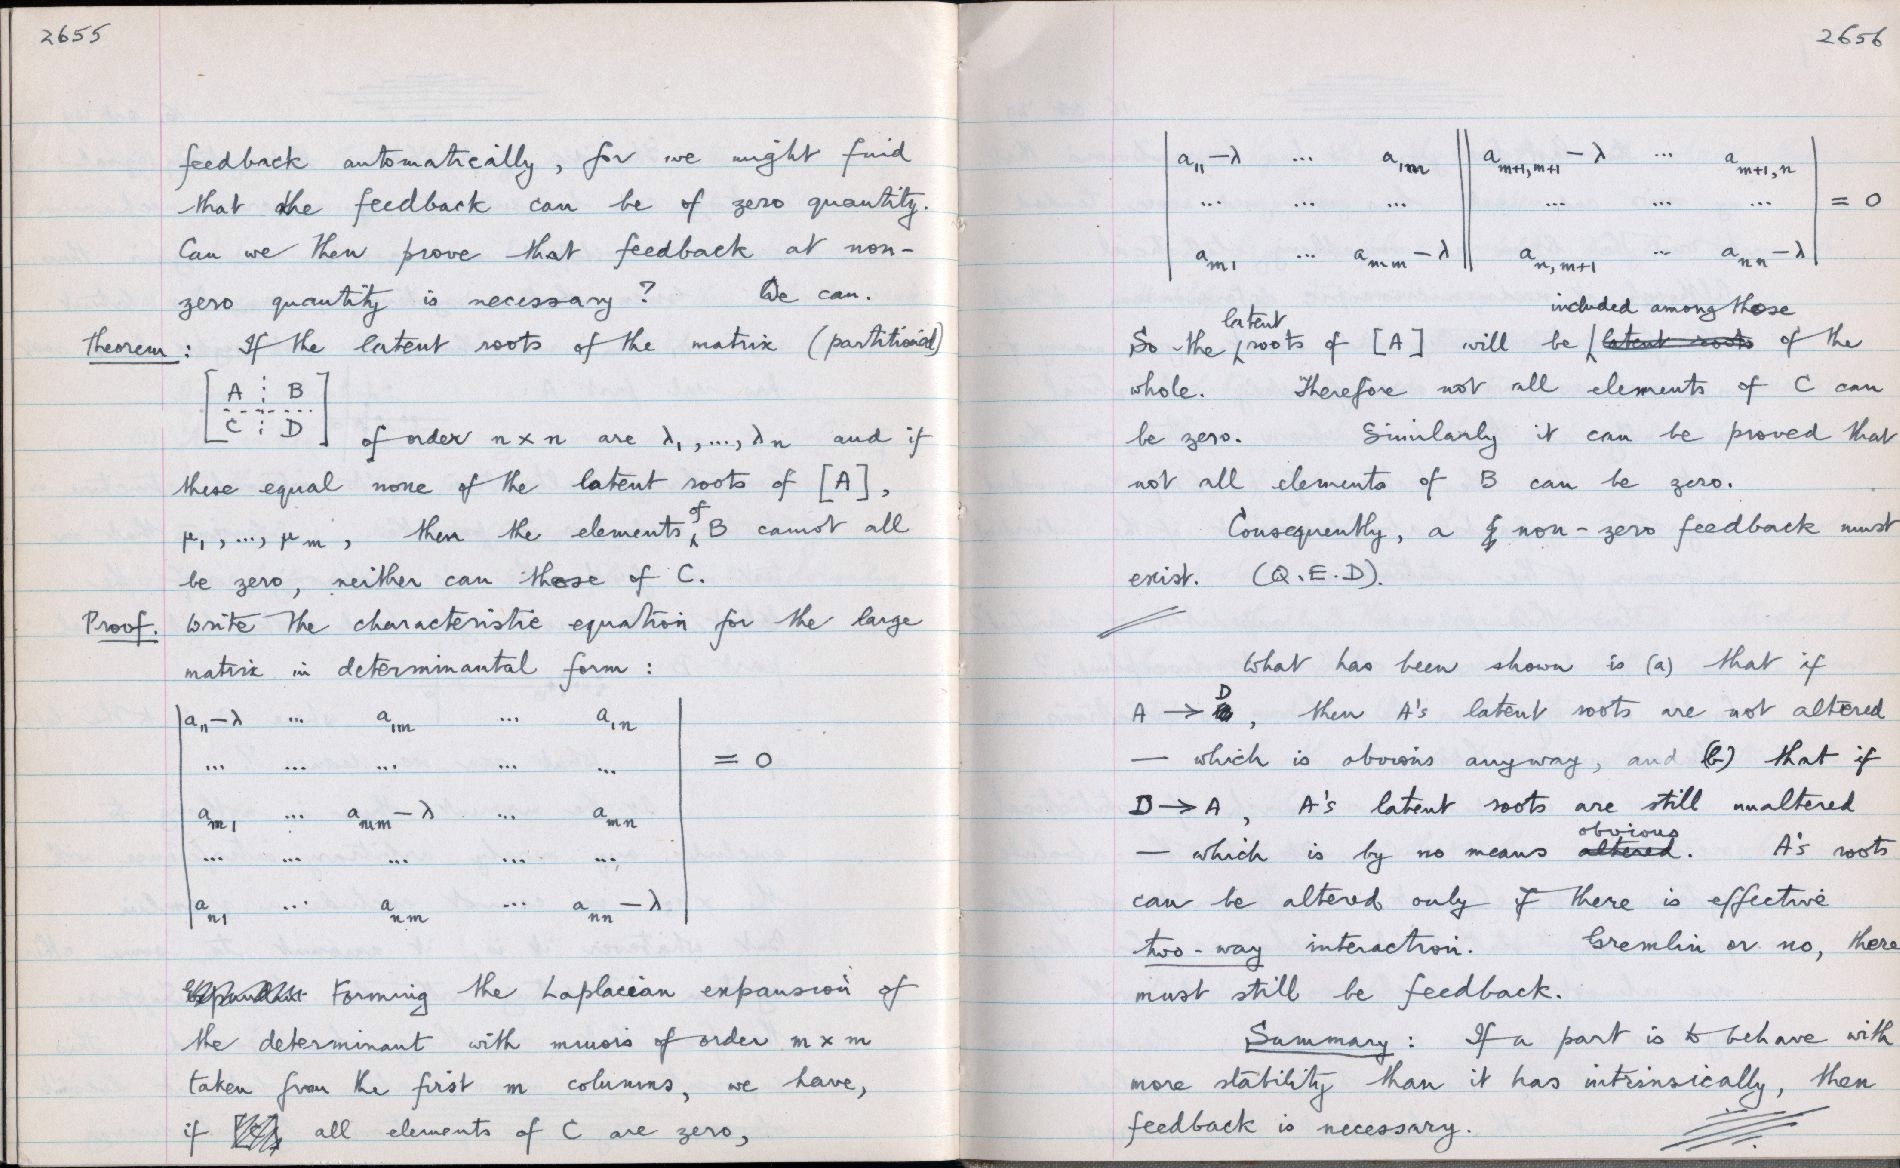 2655
feedback automatically, for we might find
that the feedback can be of zero quantity.
Can we then prove that feedback at non-
zero quantity is necessary? We can.
Theorem: If the latent roots of the matrix (partitioned)
[A ⋮ B
C ⋮ D] of order n × n are λ₁, ..., λn and if
these equal none of the latent roots of [A],
μ₁, ..., μm, then the elements of B cannot all
be zero, neither can those of C.
Proof. Write the characteristic equation for the large
matrix in determinantal form:
| a₁₁−λ ... a₁m ... a₁n |
| ... ... ... ... ... | = 0
| am1 ... amm−λ ... amn |
| ... ... ... ... ... |
| an1 ... anm ... ann−λ |
Forming the Laplacian expansion of
the determinant with minors of order m × m
taken from the first m columns, we have,
if all elements of C are zero,
2656
| a₁₁−λ ... a₁m | | am+1,m+1−λ ... am+1,n |
| ... ... ... | | ... ... ... | = 0
| am1 ... amm−λ | | an,m+1 ... ann−λ |
So the latent roots of [A] will be included among those latent roots of the
whole. Therefore not all elements of C can
be zero. Similarly it can be proved that
not all elements of B can be zero.
Consequently, a non-zero feedback must
exist. (Q.E.D).
What has been shown is (a) that if
A → D, then A's latent roots are not altered
— which is obvious anyway, and (b) that if
D → A, A's latent roots are still unaltered
— which is by no means altered obvious. A's roots
can be altered only if there is effective
two-way interaction. Gremlin or no, there
must still be feedback.
Summary: If a part is to behave with
more stability than it has intrinsically, then
feedback is necessary.